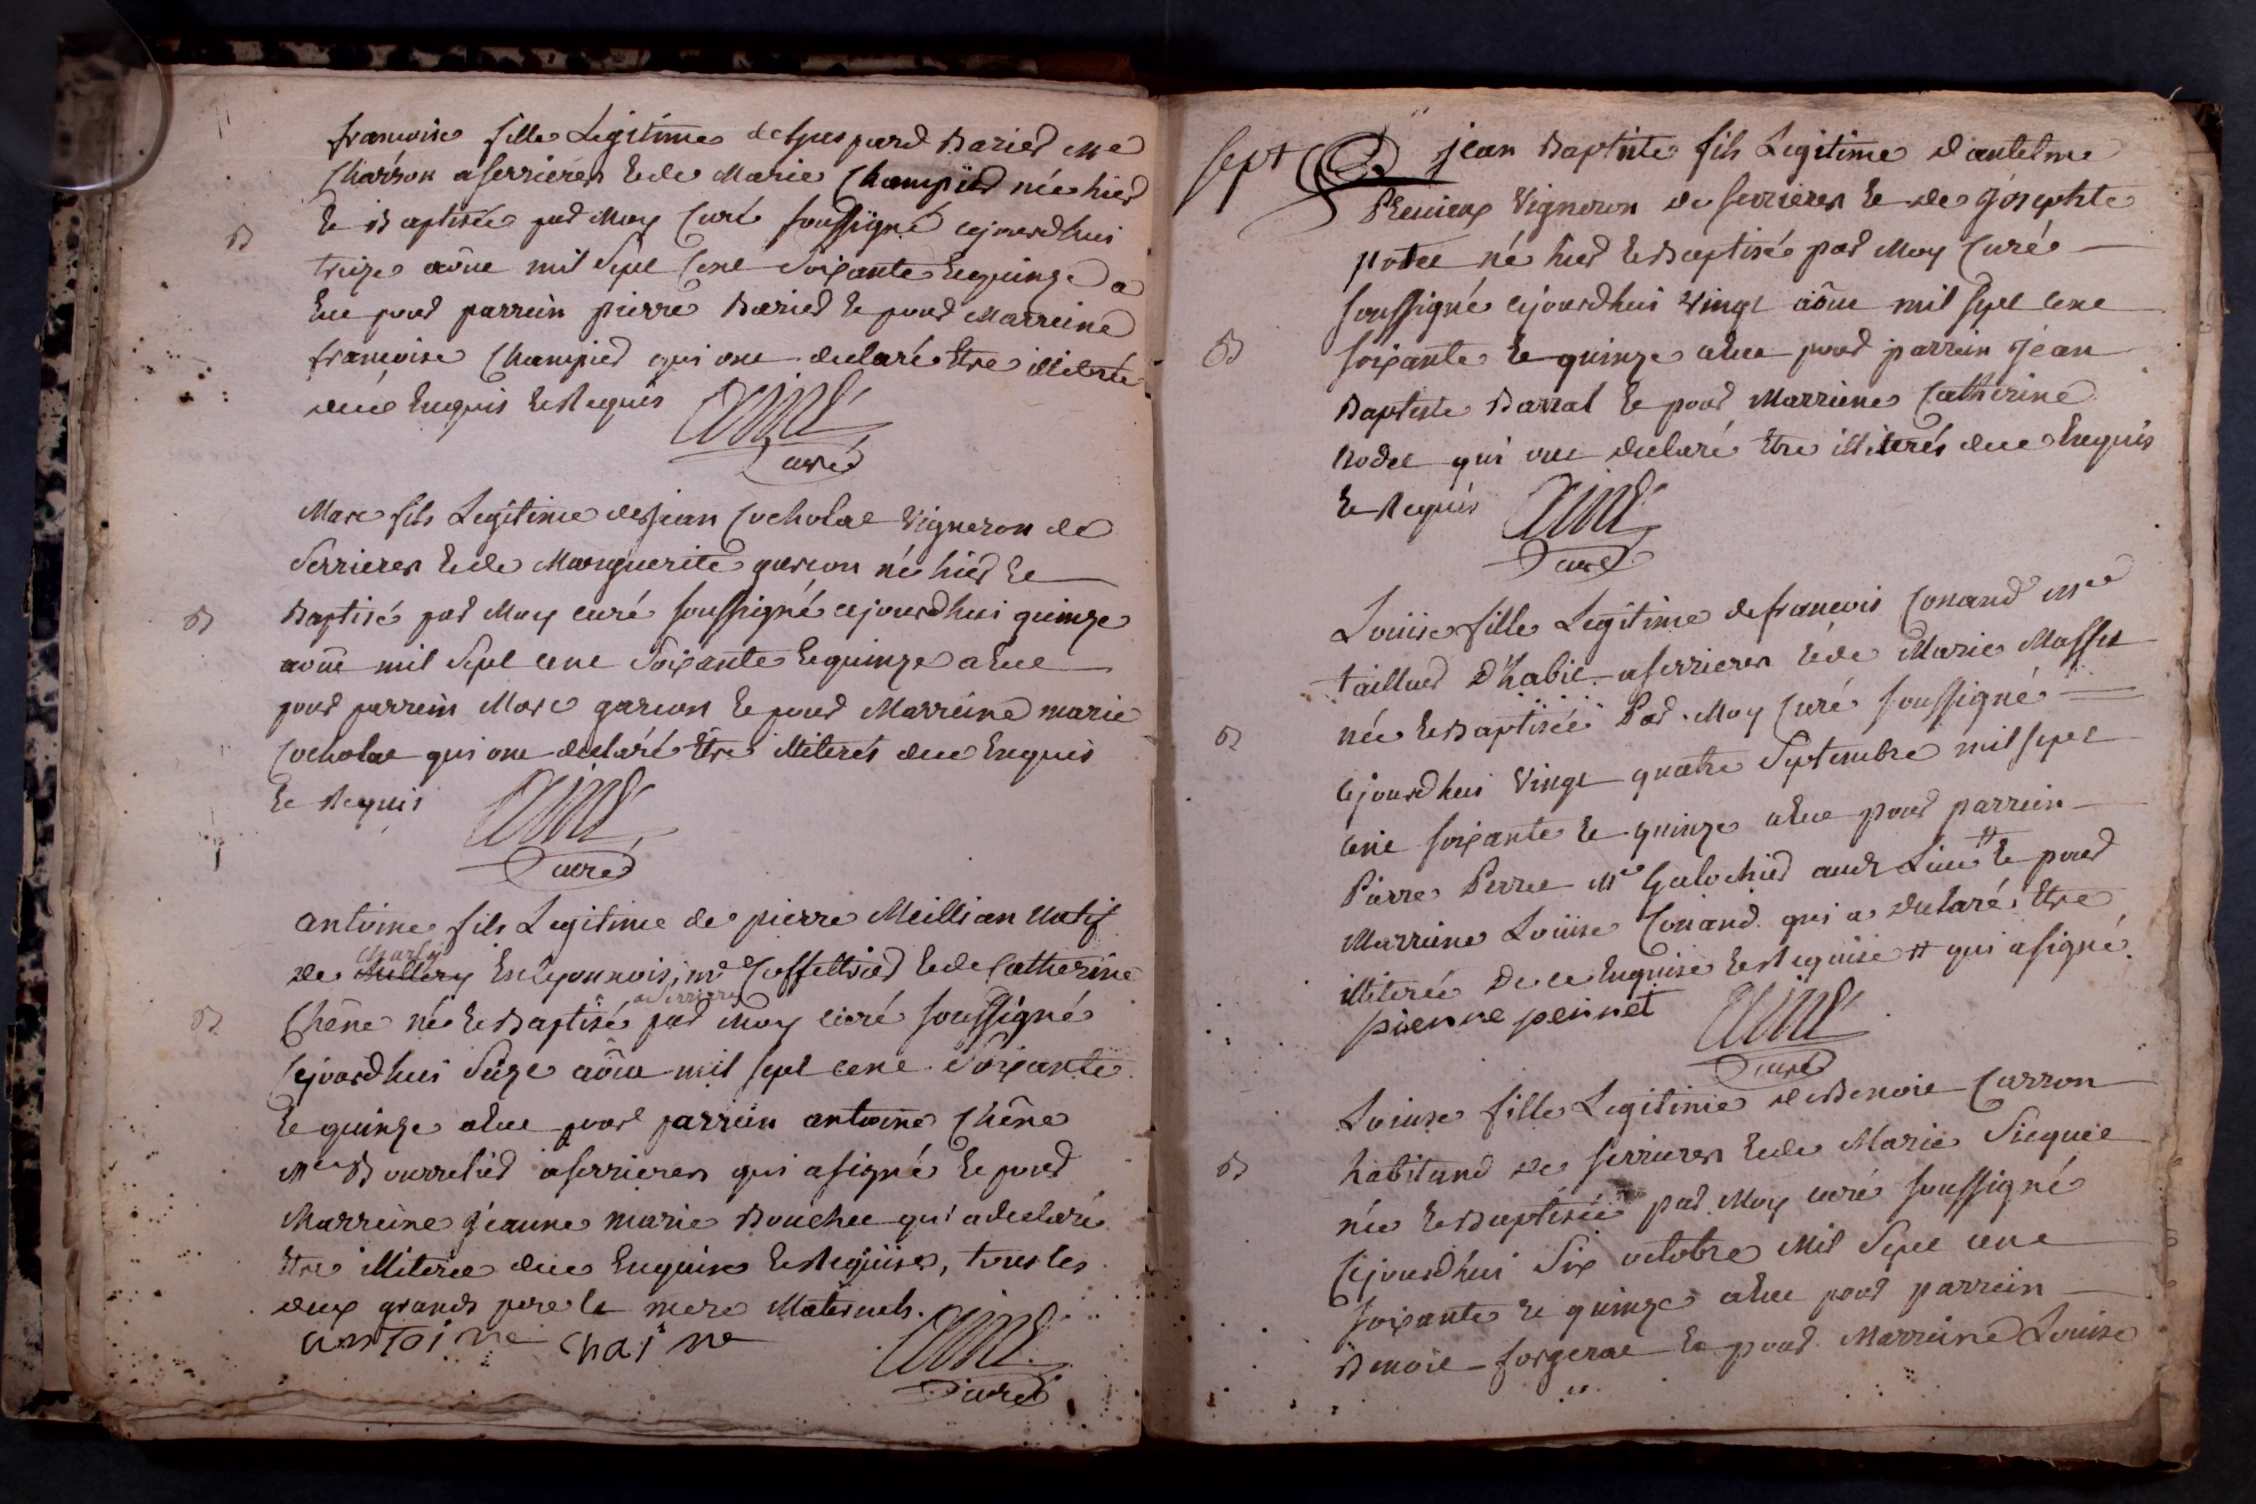 francoise fille Legitime de Gaspard Barier me
Charron a serrieres et de Marie Champied née hier
B
et Baptisée par Moy Curé soussigné cejourdhui
treize aout mil sept cent soixante et quinze a
eu pour parrein pierre Barier et pour Marreine
francoise Champied qui ont declaré être illiterés
de ce Enquis et Requis
Aimé
Curé
Marc fils Legitime de jean Cocholat Vigneron de
Serrieres et de Marguerite garcon né hier et
B
Baptisé par Moy curé soussigné cejourdhui quinze
aout mil sept cent soixante et quinze a eu
pour parrein Marc garcon et pour Marreine marie
Cocholat qui ont declaré être illiterés de ce Enquis
et Requis
Aimé
Curé
antoine fils Legitime de pierre Meillian Natif
Charly
de Millery En Lyonnois, me Coffettier et de Catherine
a Serrieres
B
Chêne né et Baptisé par Moy curé soussigné
cejourdhui seize aout mil sept cent soixante
et quinze a eu pour parrein antoine Chêne
Me Bourrelier a serrieres qui a signé et pour
Marreine jeanne marie Bouchet qui a declaré
être illiterée de ce Enquise et Requise, tous les
deux grands pere et mere Maternels.
antoine chaine
Aimé
Curé
Sept
jean Baptiste fils Legitime d'antelme
Vigneron de serrieres et de josephte
né hier et Baptisé par Moy Curé
soussigné cejourdhui vingt aout mil sept cent
B
soixante et quinze a eu pour parrein jean
Baptiste Barral et pour Marreine Catherine
qui ont declaré être illiterés de ce Enquis
et Requis
Aimé
Curé
Louise fille Legitime de francois Conand me
tailleur d'habit a serrieres et de Marie Masset
B
née et Baptisée Par Moy Curé soussigné
cejourdhui vingt quatre Septembre mil sept
cent soixante et quinze a eu pour parrein
Pierre Perret Me Galochier audt Lieu # et pour
Marreine Louise Conand qui a declaré être
illiterée De ce Enquise et Requise # qui a signé
pienne pennet
Aimé
Curé
Louise fille Legitime de Benoit Carron
B
habitand de serrieres et de Marie
née et Baptisée par Moy curé soussigné
cejourdhui six octobre Mil sept cent
soixante et quinze a eu pour parrein
Benoit forgerat et pour Marreine Louise